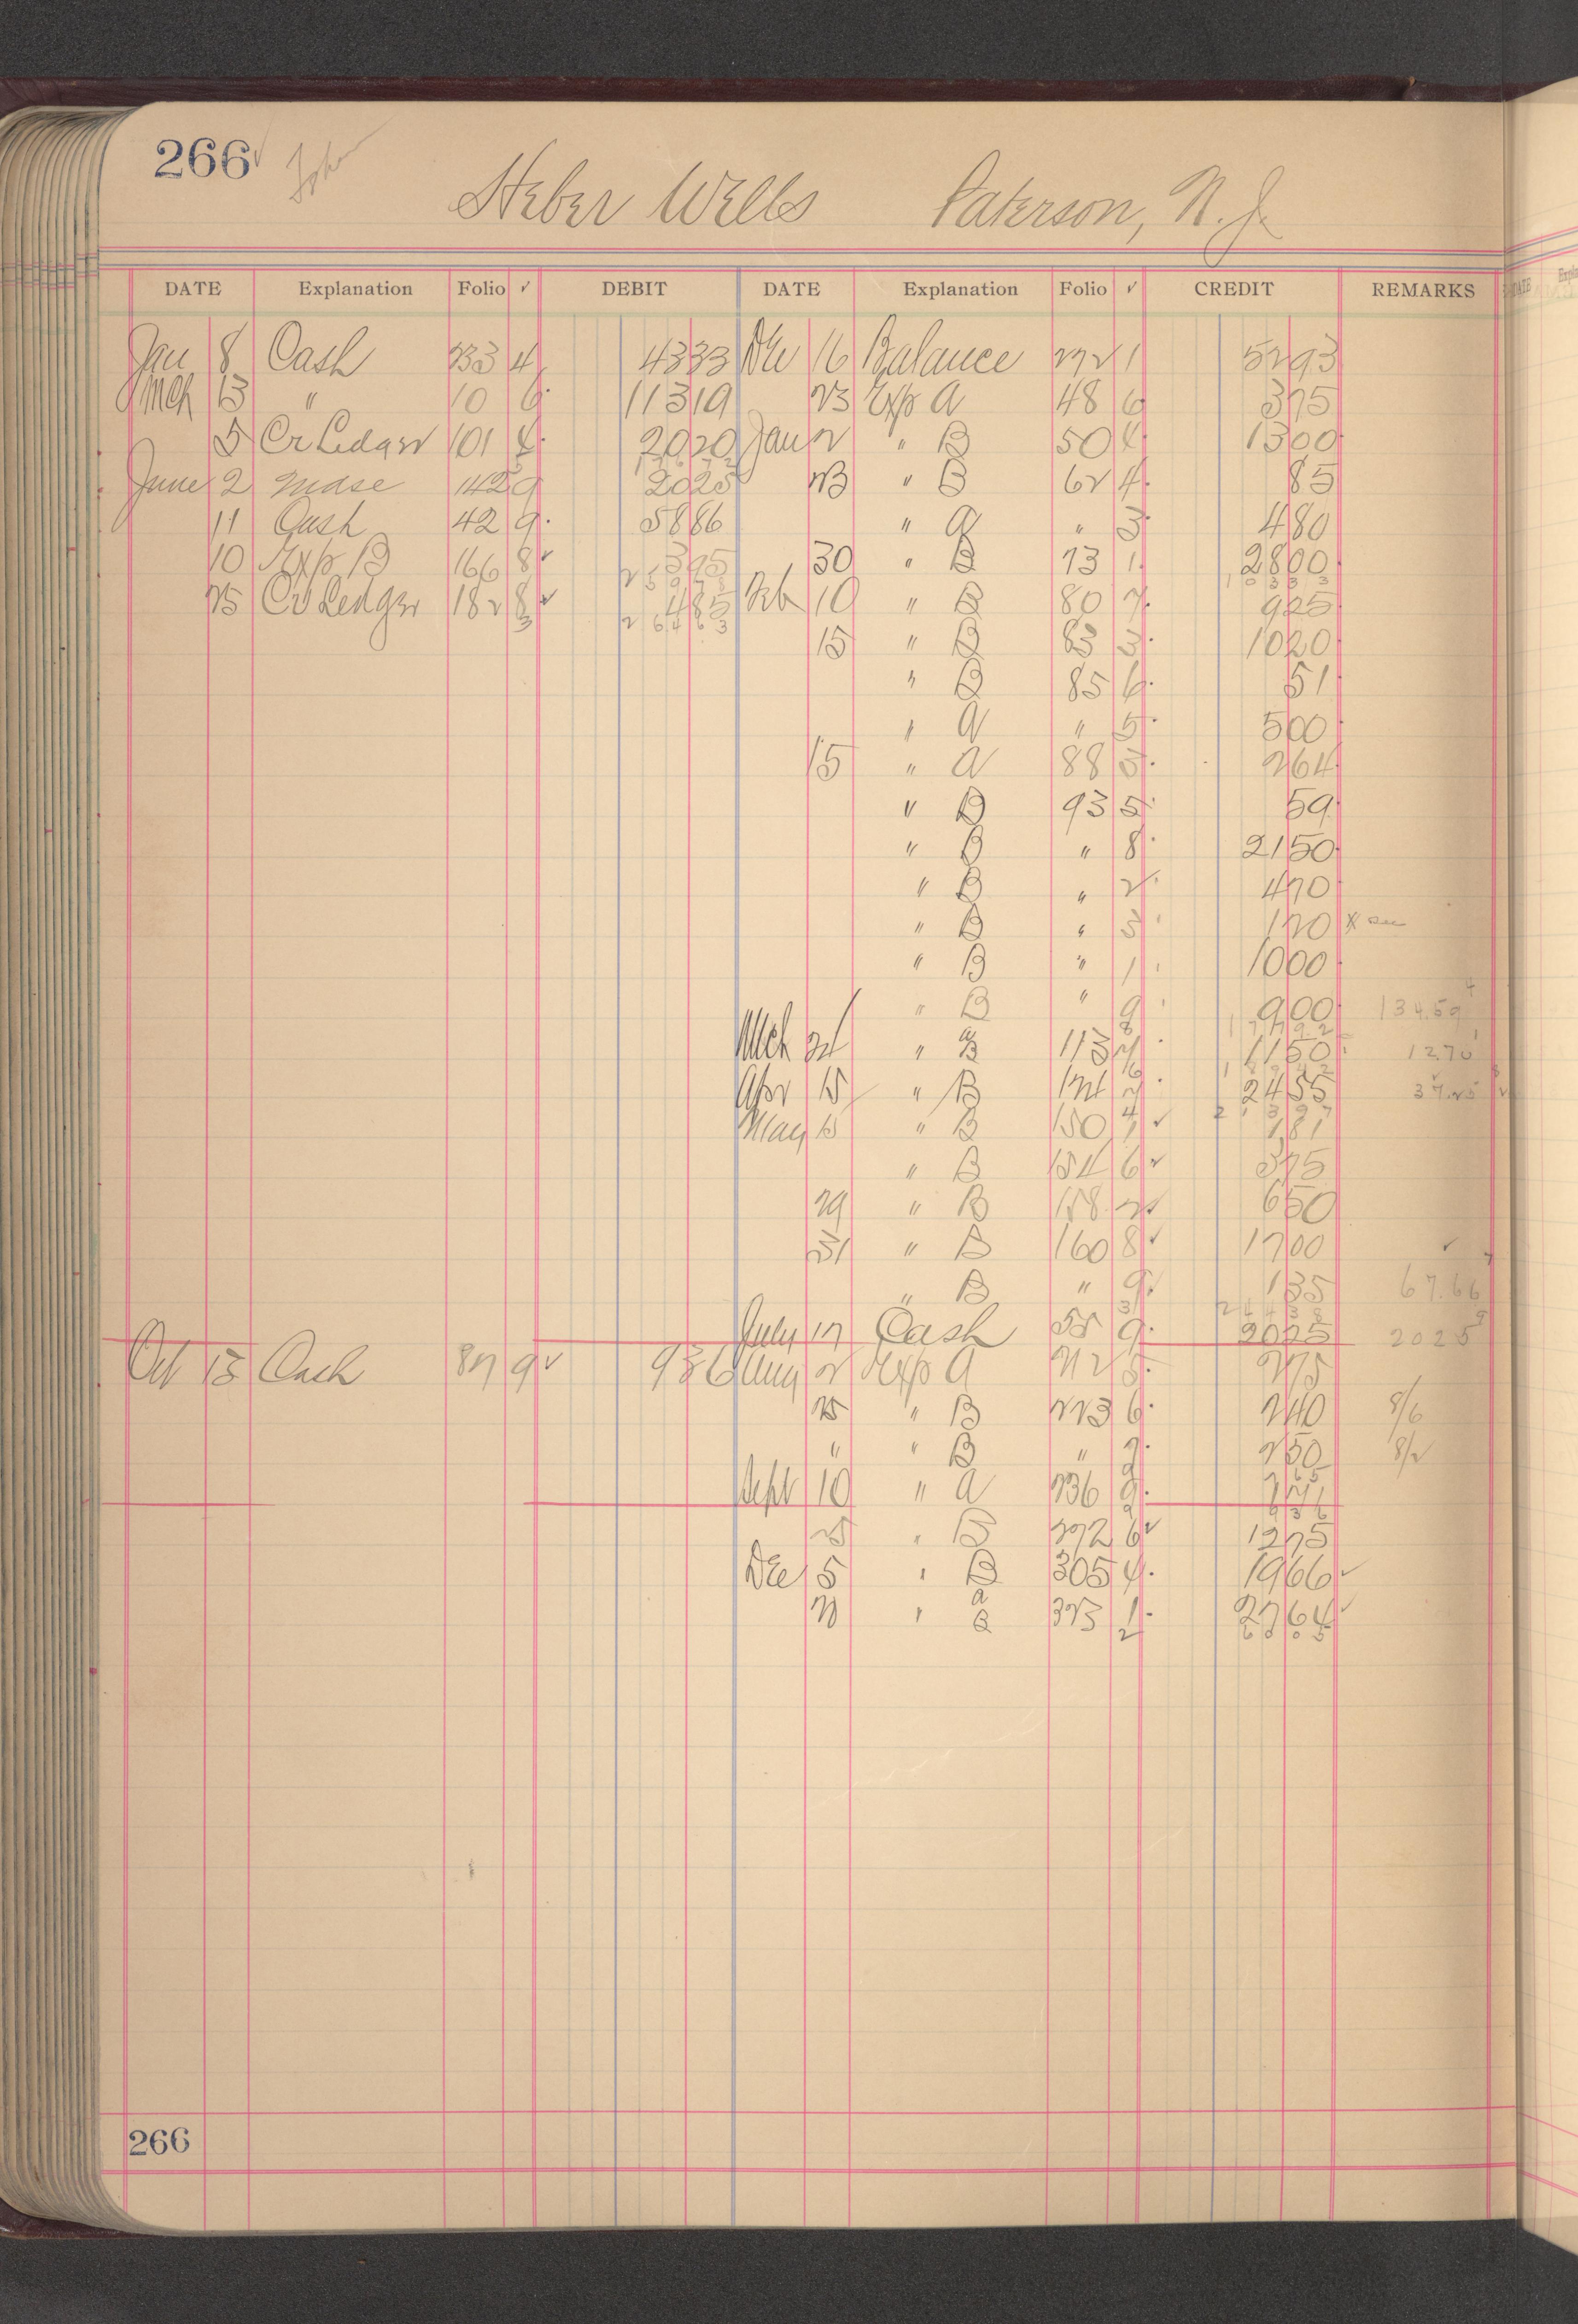 266
Heber Wells Paterson, N. J.
DATE Explanation Folio ✓ DEBIT DATE Explanation Folio ✓ CREDIT REMARKS
Jan 8 Cash 233 4 4333 Dec 16 Balance 272 1 5293
Mch 13 " 10 6 11319 23 Exp A 48 6 375
5 Cr Ledger 101 2020 Jan 2 " B 50 1300
June 2 Mdse 142 9 2025 23 " B 62 4 85
11 Cash 42 9 5886 " A " 3 480
10 Exp B 166 8 ✓ 395 30 " B 73 1 2800
25 Cr Ledger 182 8 ✓ 485 Feb 10 " B 80 7 925
15 " B 83 3 1020
" B 85 6 51
" A " 5 500
15 " A 88 3 264
" B 93 5 59
" B " 8 2150
" B " 2 470
" B " 3 120 x
" B " 1 1000
" B " 9 900 134.59
Mch " B 113 1150 12.70
Apr 15 " B 2455 37.25
May 15 " B 150 ✓ 181
" B 154 6 ✓ 375
29 " B 158 2 ✓ 650
31 " B 160 8 ✓ 1700
" B " 9 ✓ 135 67.66
July 17 Cash 55 9 2025 2025
Oct 13 Cash 87 9 ✓ 936 Aug 2 Exp A 212 5 275
25 " B 223 6 240 8/6
" " B " 7 250 8/2
Sept 10 " A 236 9
25 " B 272 6 ✓ 1275
Dec 5 " B 305 4 1966 ✓
323 1 2764 ✓
266